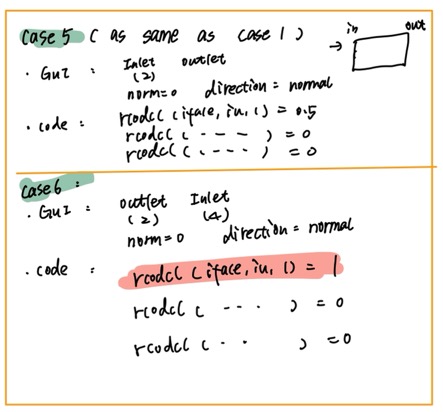 Case 5 ( as same as case 1 )
in out
→
· GUI : Inlet outlet
(2)
norm=0 direction = normal
· code : rcodcl (iface, in, 1) = 0.5
rcodcl ( · - - - ) = 0
rcodcl ( · - - - ) = 0
Case 6 :
· GUI : outlet Inlet
(2) (4)
norm=0 direction = normal
· code : rcodcl (iface, in, 1) = 1
rcodcl ( - - - ) = 0
rcodcl ( · · ) = 0